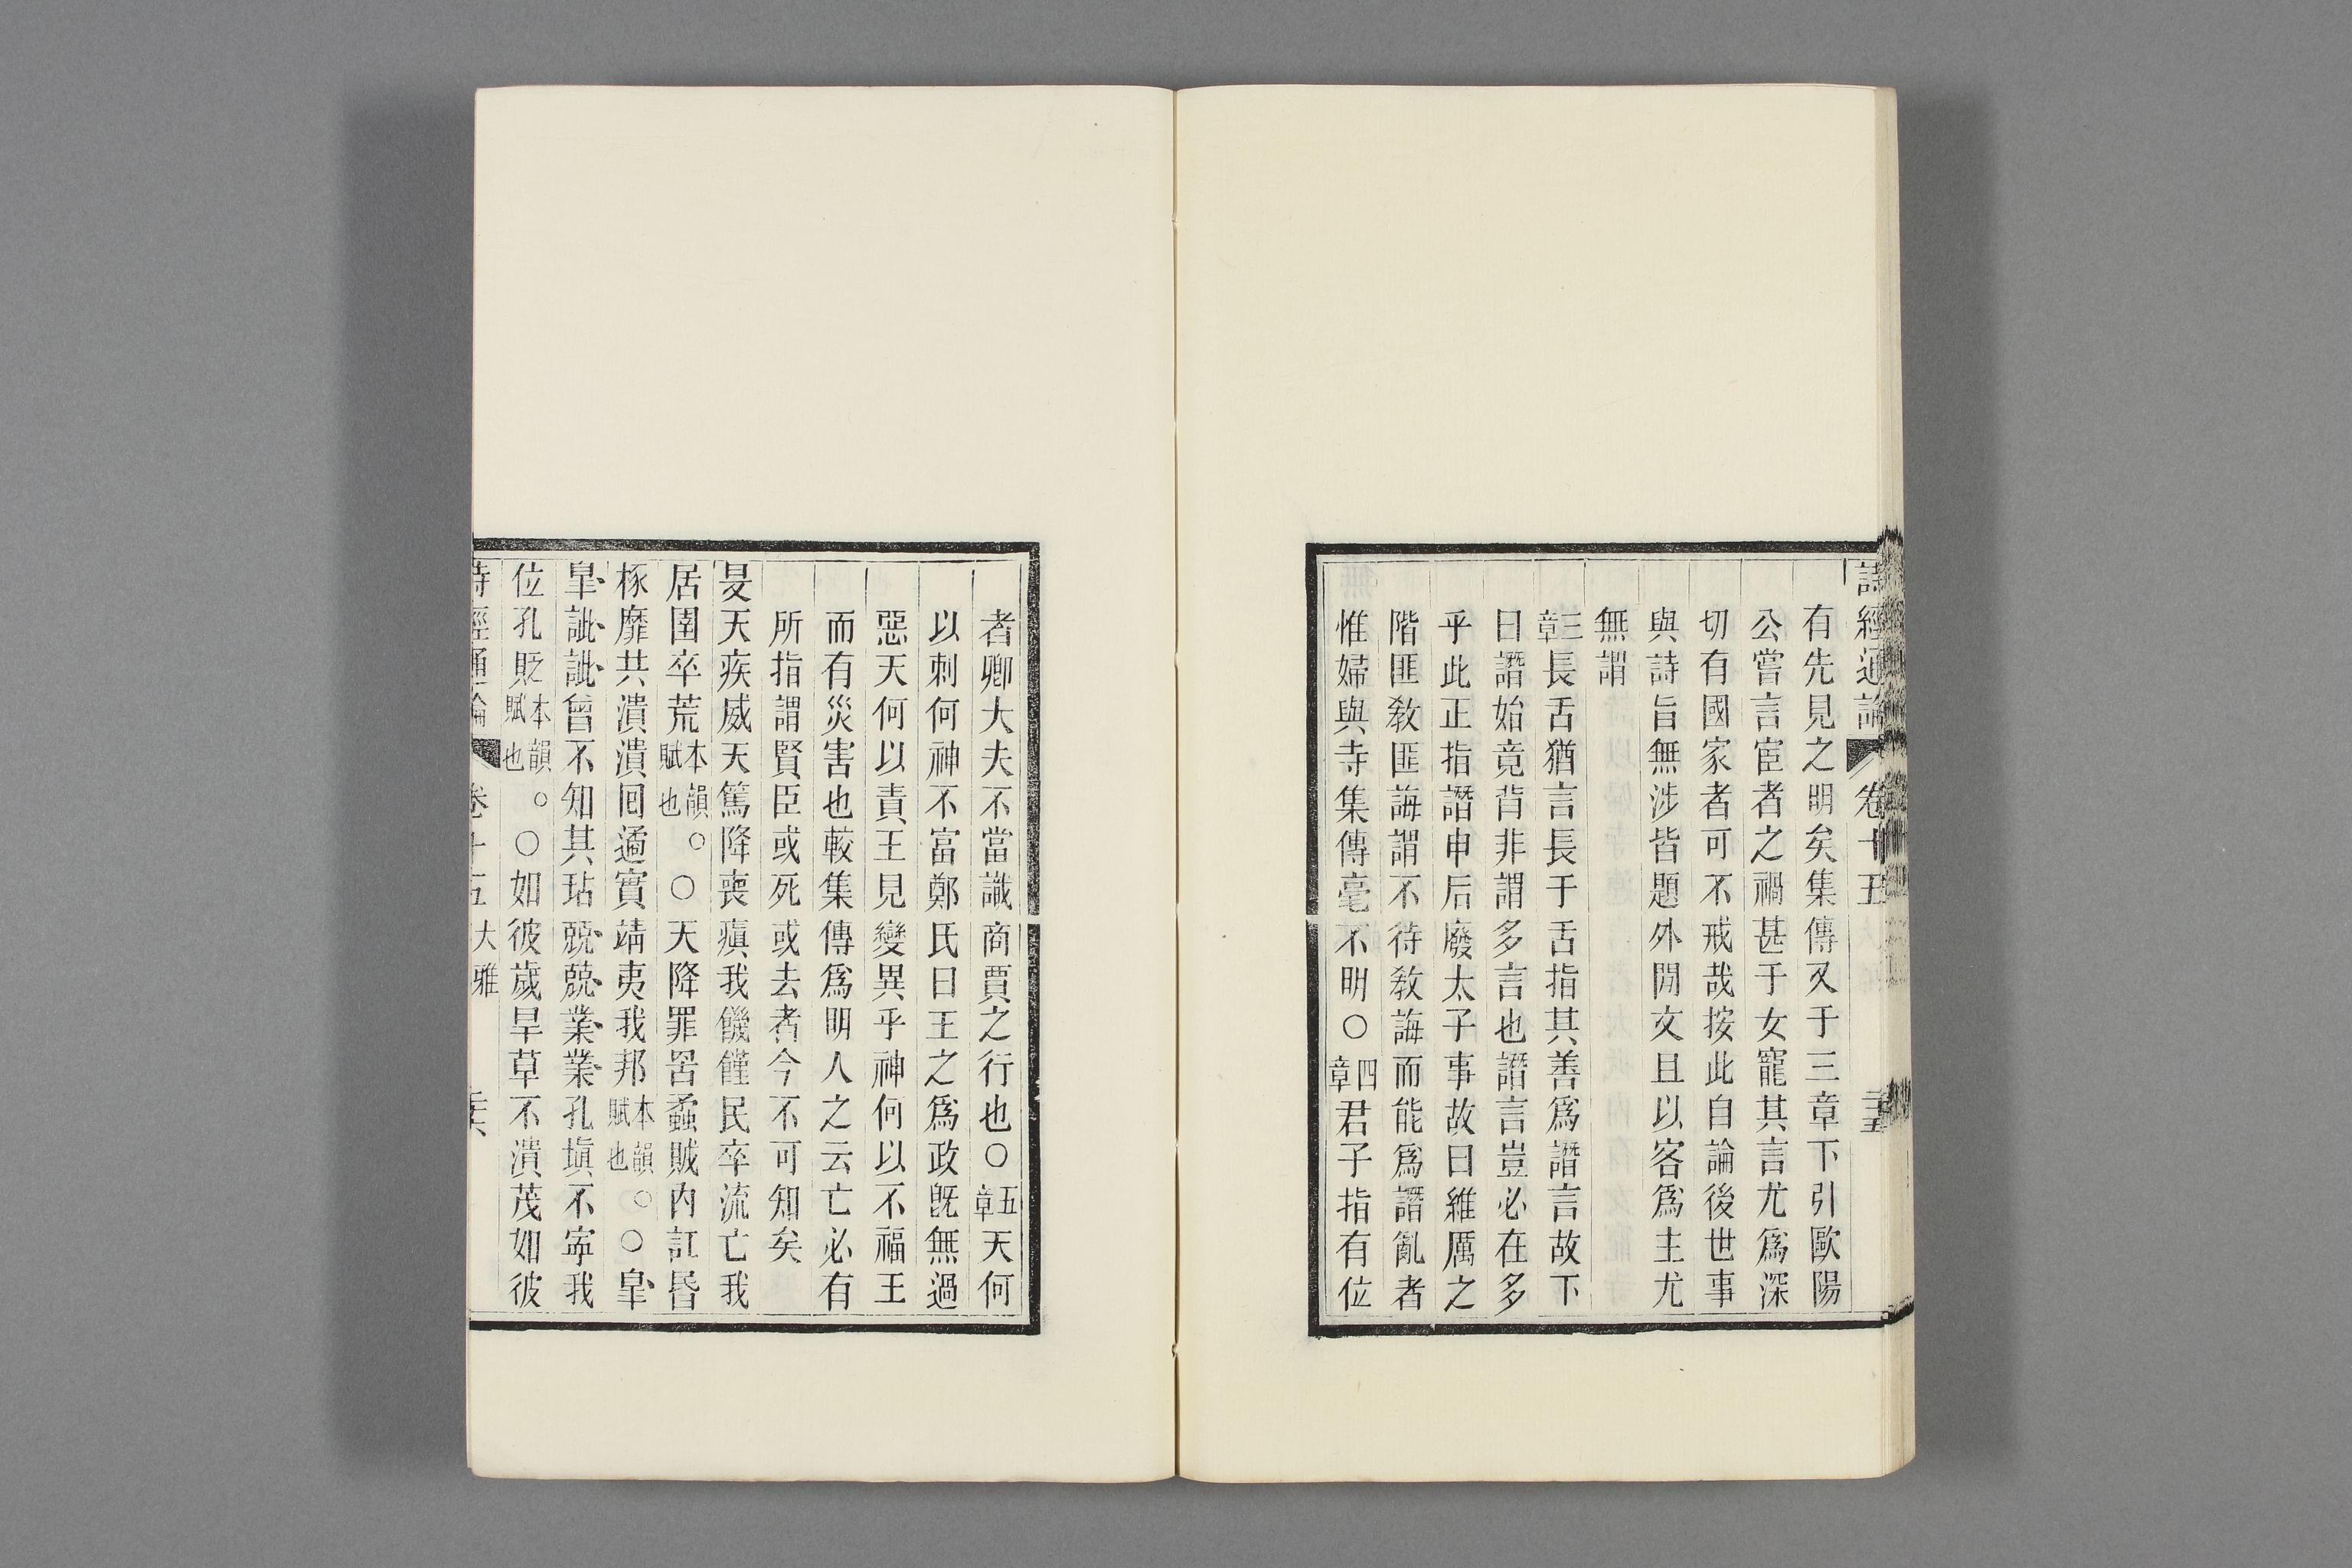 詩經通論 卷十五 二十五
有先見之明矣集傳又于三章下引歐陽
公嘗言宦者之禍甚于女寵其言尤爲深
切有國家者可不戒哉按此自論後世事
與詩旨無涉皆題外閒文且以客爲主尤
無謂
三章長舌猶言長于舌指其善爲譖言故下
曰譖始竟背非謂多言也譖言豈必在多
乎此正指譖申后廢太子事故曰維厲之
階匪敎匪誨謂不待敎誨而能爲譖亂者
惟婦與寺集傳毫不明○四章君子指有位
者卿大夫不當識商賈之行也○五章天何
以刺何神不富鄭氏曰王之爲政旣無過
惡天何以責王見變異乎神何以不福王
而有災害也較集傳爲明人之云亡必有
所指謂賢臣或死或去者今不可知矣
旻天疾威天篤降喪瘨我饑饉民卒流亡我
居圉卒荒本韻賦也。○天降罪罟蟊賊內訌昬
椓靡共潰潰囘遹實靖夷我邦本韻賦也。○臯
臯訿訿曾不知其玷兢兢業業孔塡不寧我
位孔貶本韻賦也。○如彼歲旱草不潰茂如彼
詩經通論 卷十五 大雅 二十六